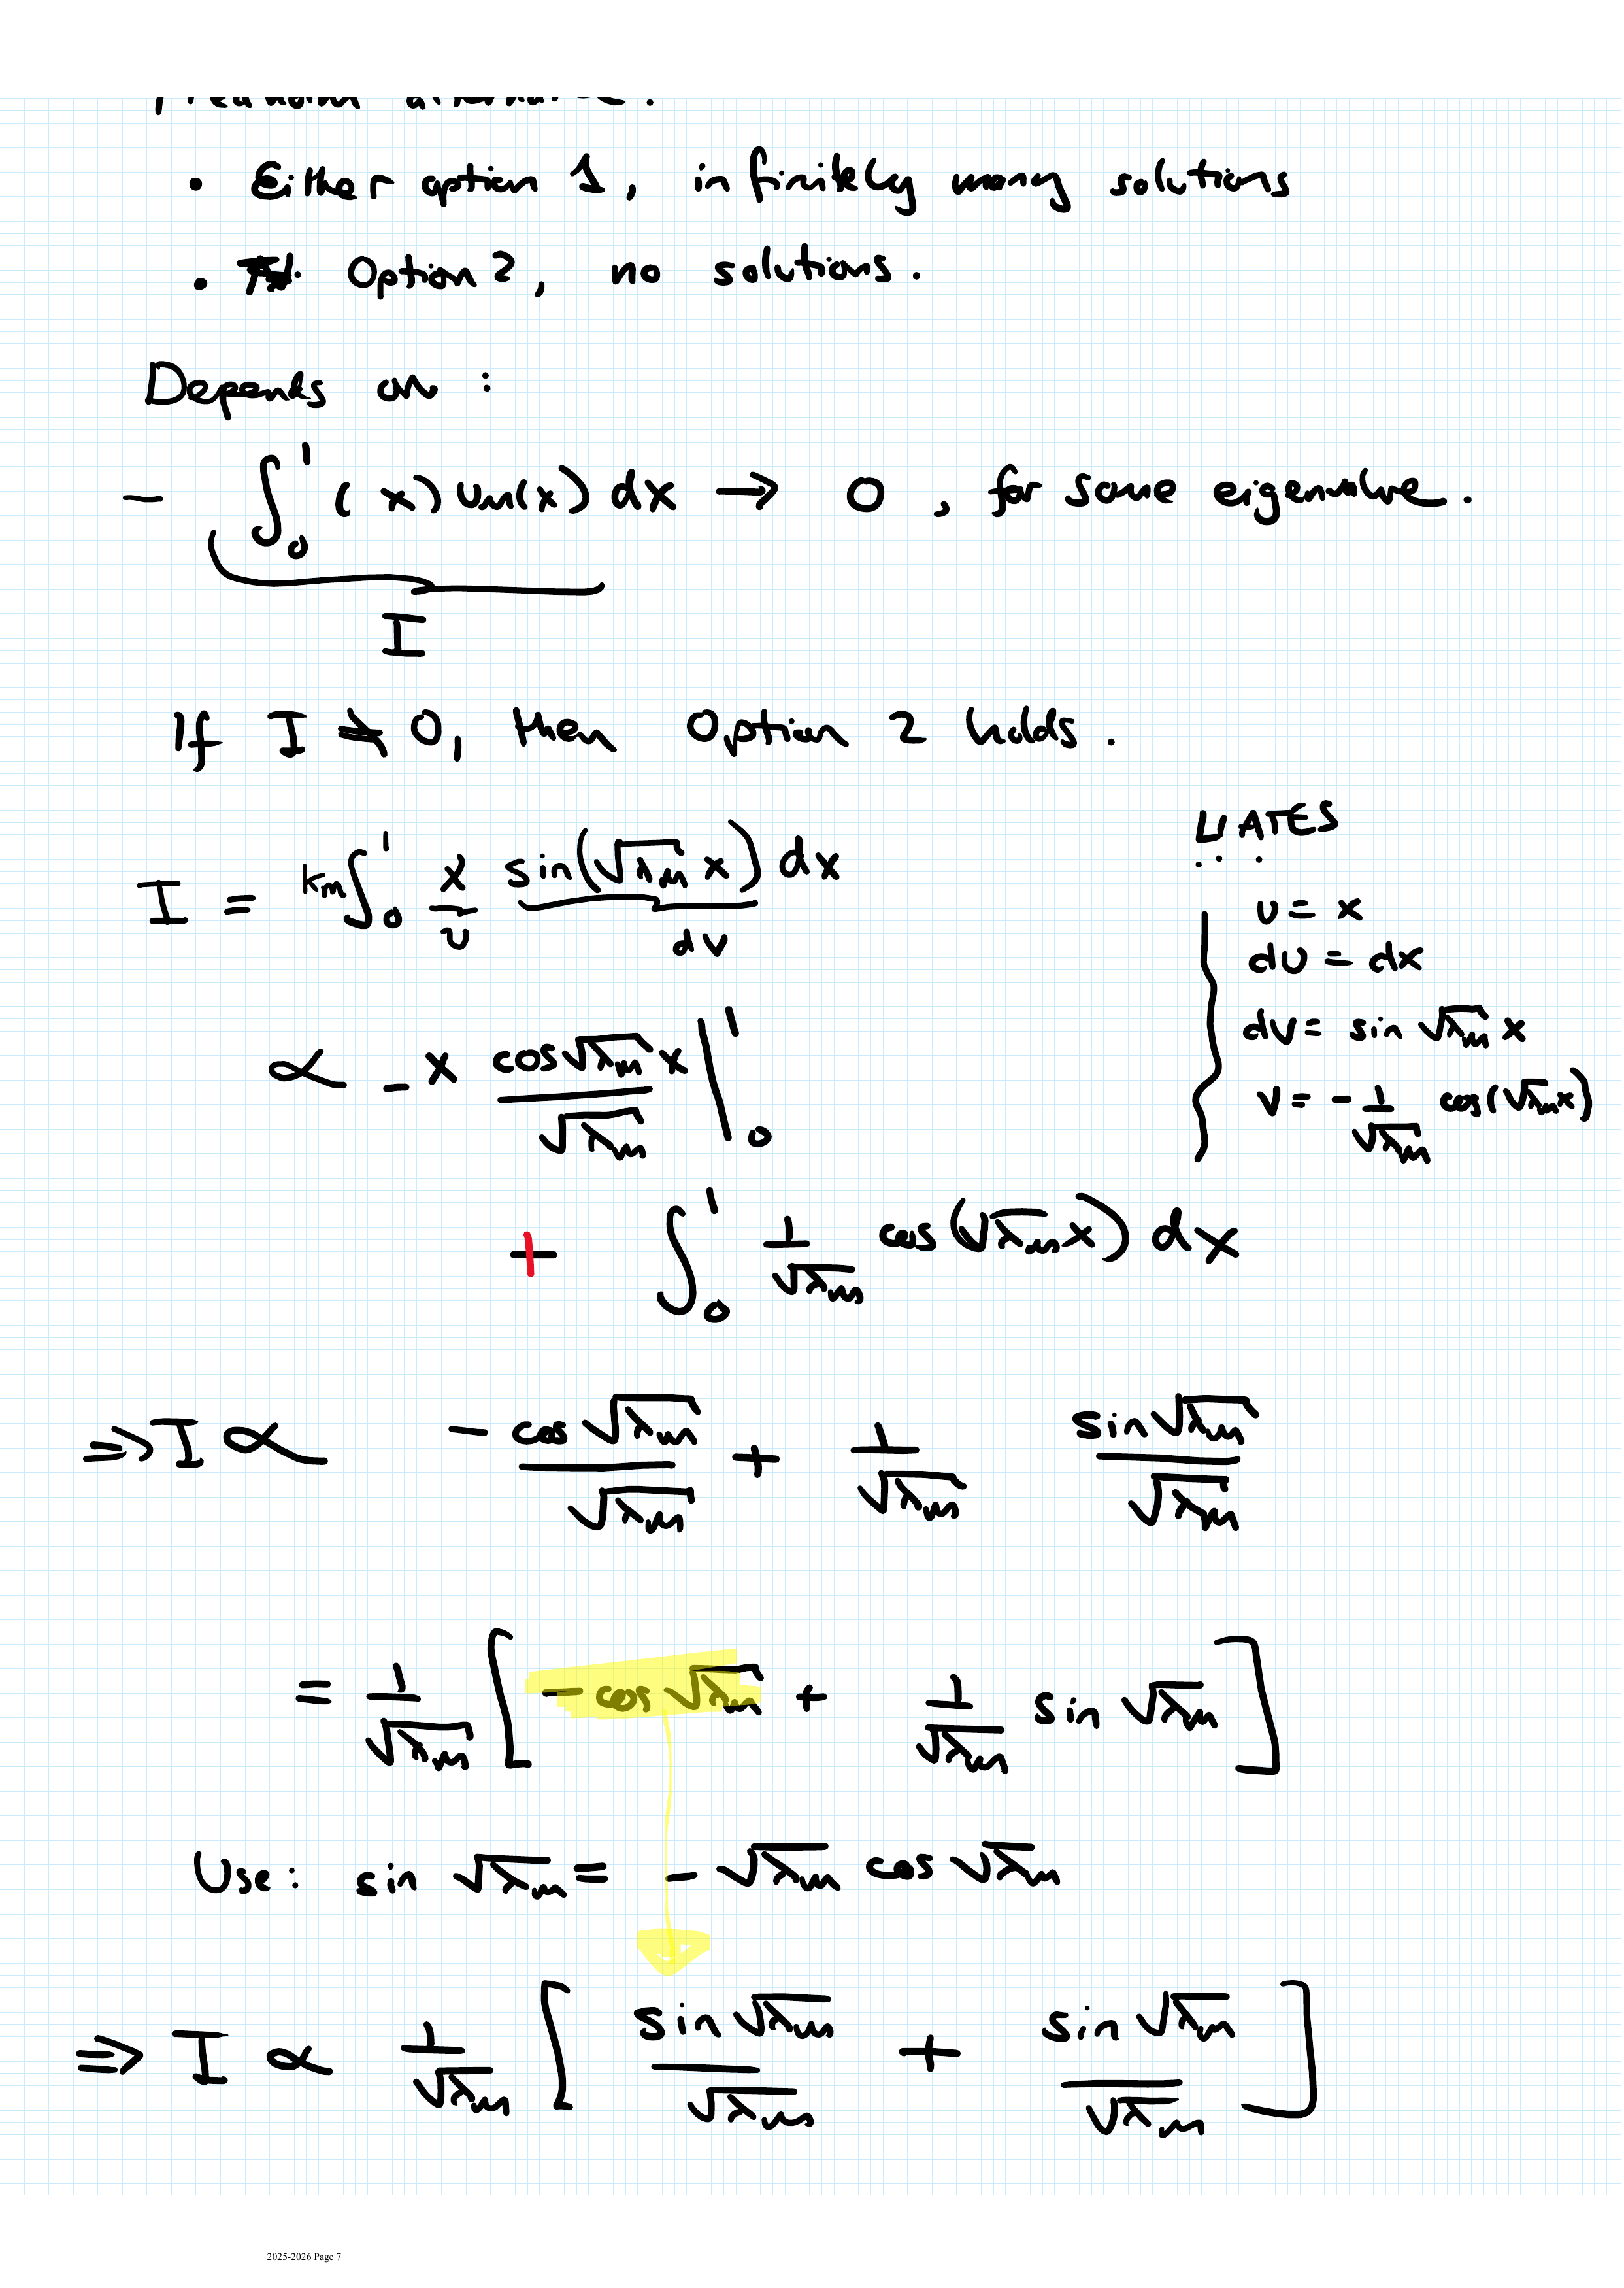 • Either option 1, infinitely many solutions
• Option 2, no solutions.
Depends on :
- ∫₀¹ (x) um(x) dx → 0, for some eigenvalue.
I
If I ≠ 0, then Option 2 holds.
LIATES
I = km ∫₀¹ x sin(√λm x) dx
u dv
u = x
du = dx
dv = sin √λm x
v = - 1/√λm cos(√λm x)
∝ - x cos√λm x / √λm |₀¹
+ ∫₀¹ 1/√λm cos(√λm x) dx
⇒ I ∝ - cos √λm / √λm + 1/√λm sin√λm / √λm
= 1/√λm [ - cos √λm + 1/√λm sin √λm ]
Use: sin √λm = - √λm cos √λm
⇒ I ∝ 1/√λm [ sin √λm / √λm + sin √λm / √λm ]
2025-2026 Page 7